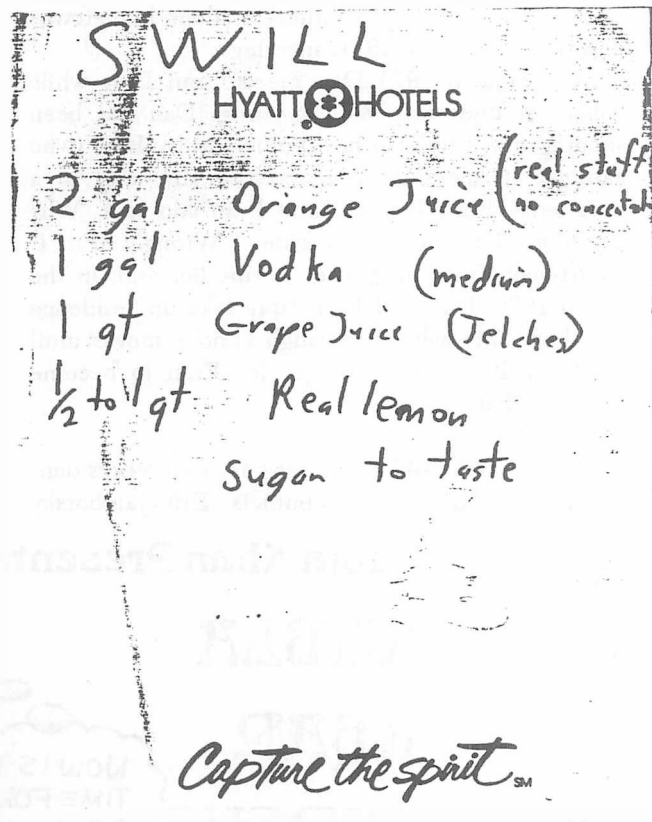 SWILL
HYATT HOTELS
2 gal Orange Juice (real stuff
no concentrate
1 gal Vodka (medium)
1 qt Grape Juice (Welches)
1/2 to 1 qt Real lemon
sugar to taste
Capture the spirit SM
NOW IS
TIME FO